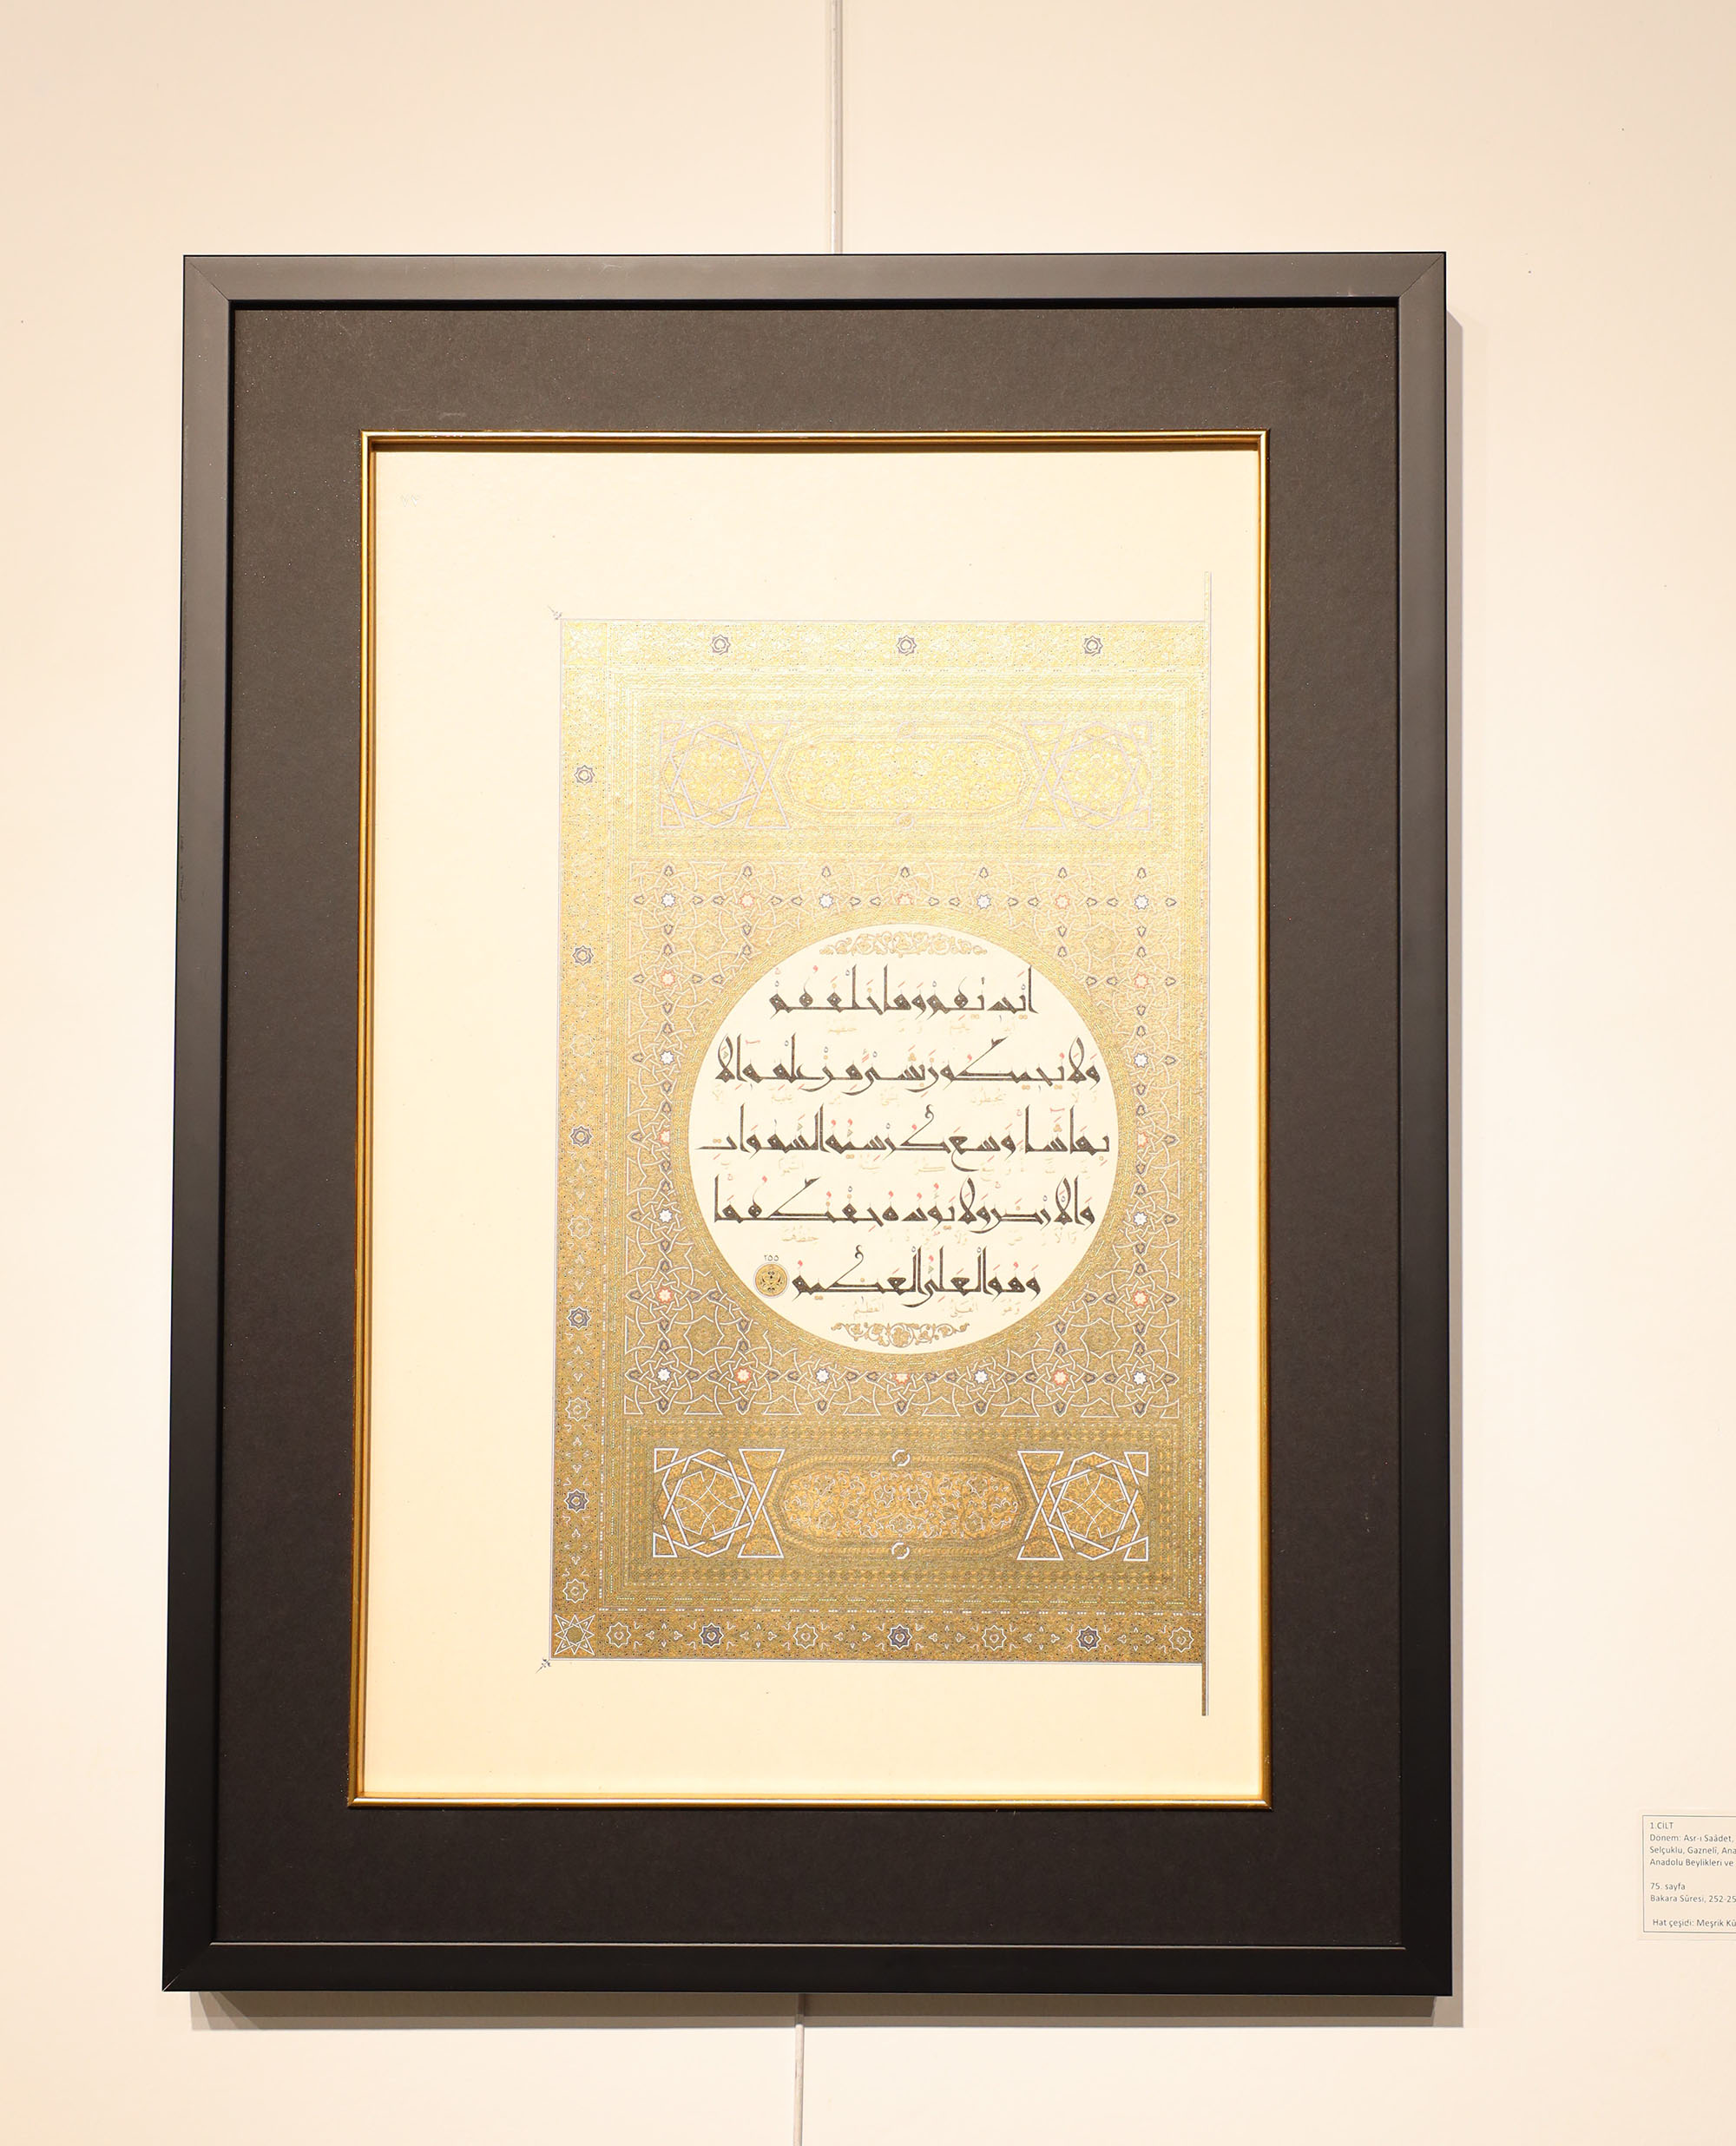 اَيْدِيهِمْ وَمَا خَلْفَهُمْ
وَلَا يُحِيطُونَ بِشَيْءٍ مِنْ عِلْمِهِ اِلَّا
بِمَا شَاءَ وَسِعَ كُرْسِيُّهُ السَّمٰوَاتِ
وَالْاَرْضَ وَلَا يَؤُدُهُ حِفْظُهُمَا
وَهُوَ الْعَلِيُّ الْعَظِيمُ ٢٥٥
1.CİLT
Dönem: Asr-ı Saâdet,
Selçuklu, Gazneli, Ana
Anadolu Beylikleri ve
75. sayfa
Bakara Sûresi, 252-25
Hat çeşidi: Meşrik Kü